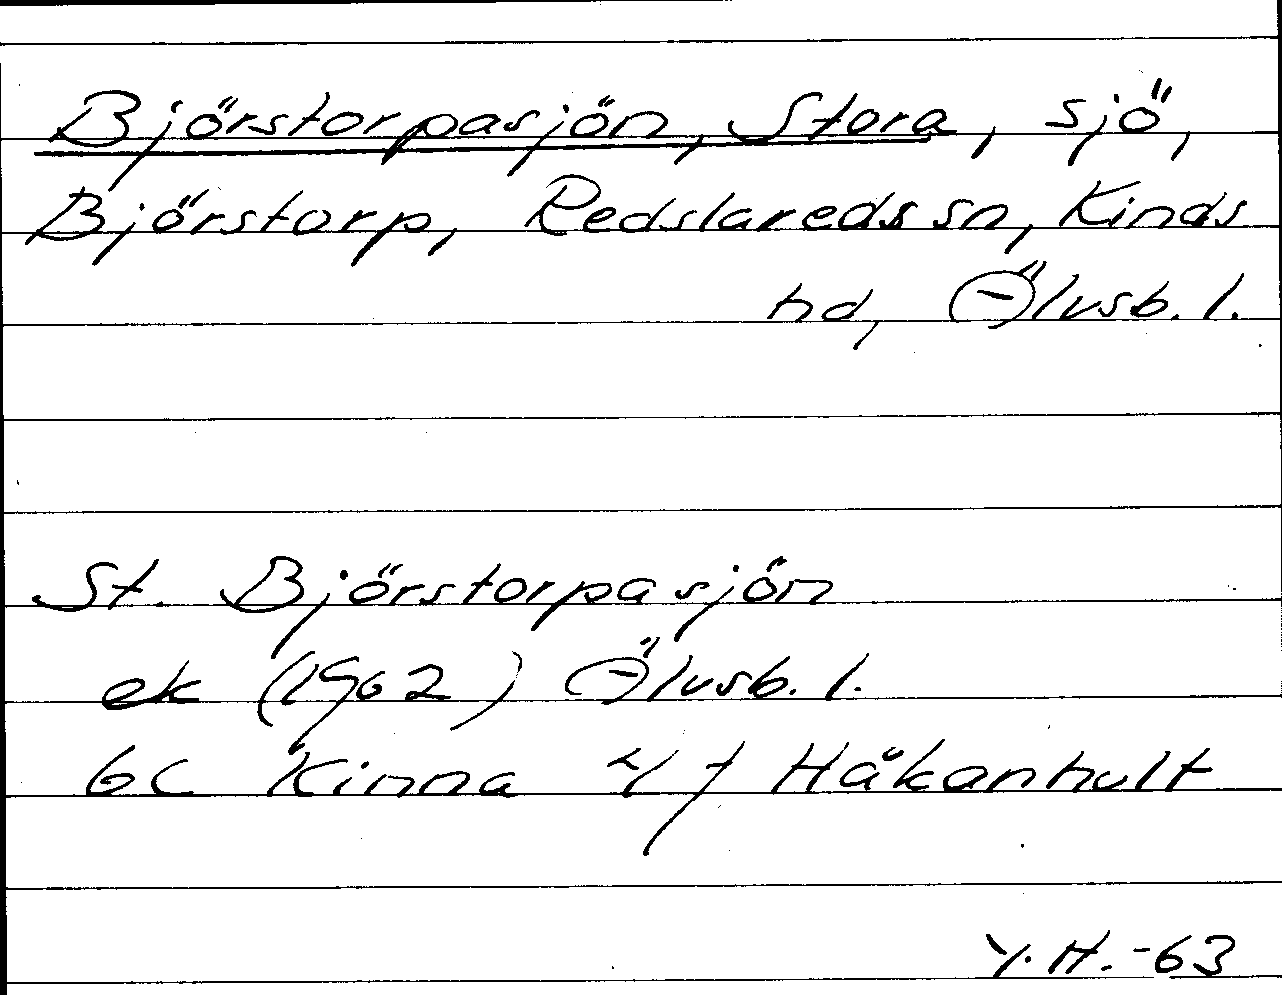 Björstorpasjön, Stora, sjö,
Björstorp, Redslareds sn, Kinds
hd, Älvsb. l.
St. Björstorpasjön
ek (1962) Älvsb. l.
6C Kinna 4 f Håkanhult
Y.H.-63